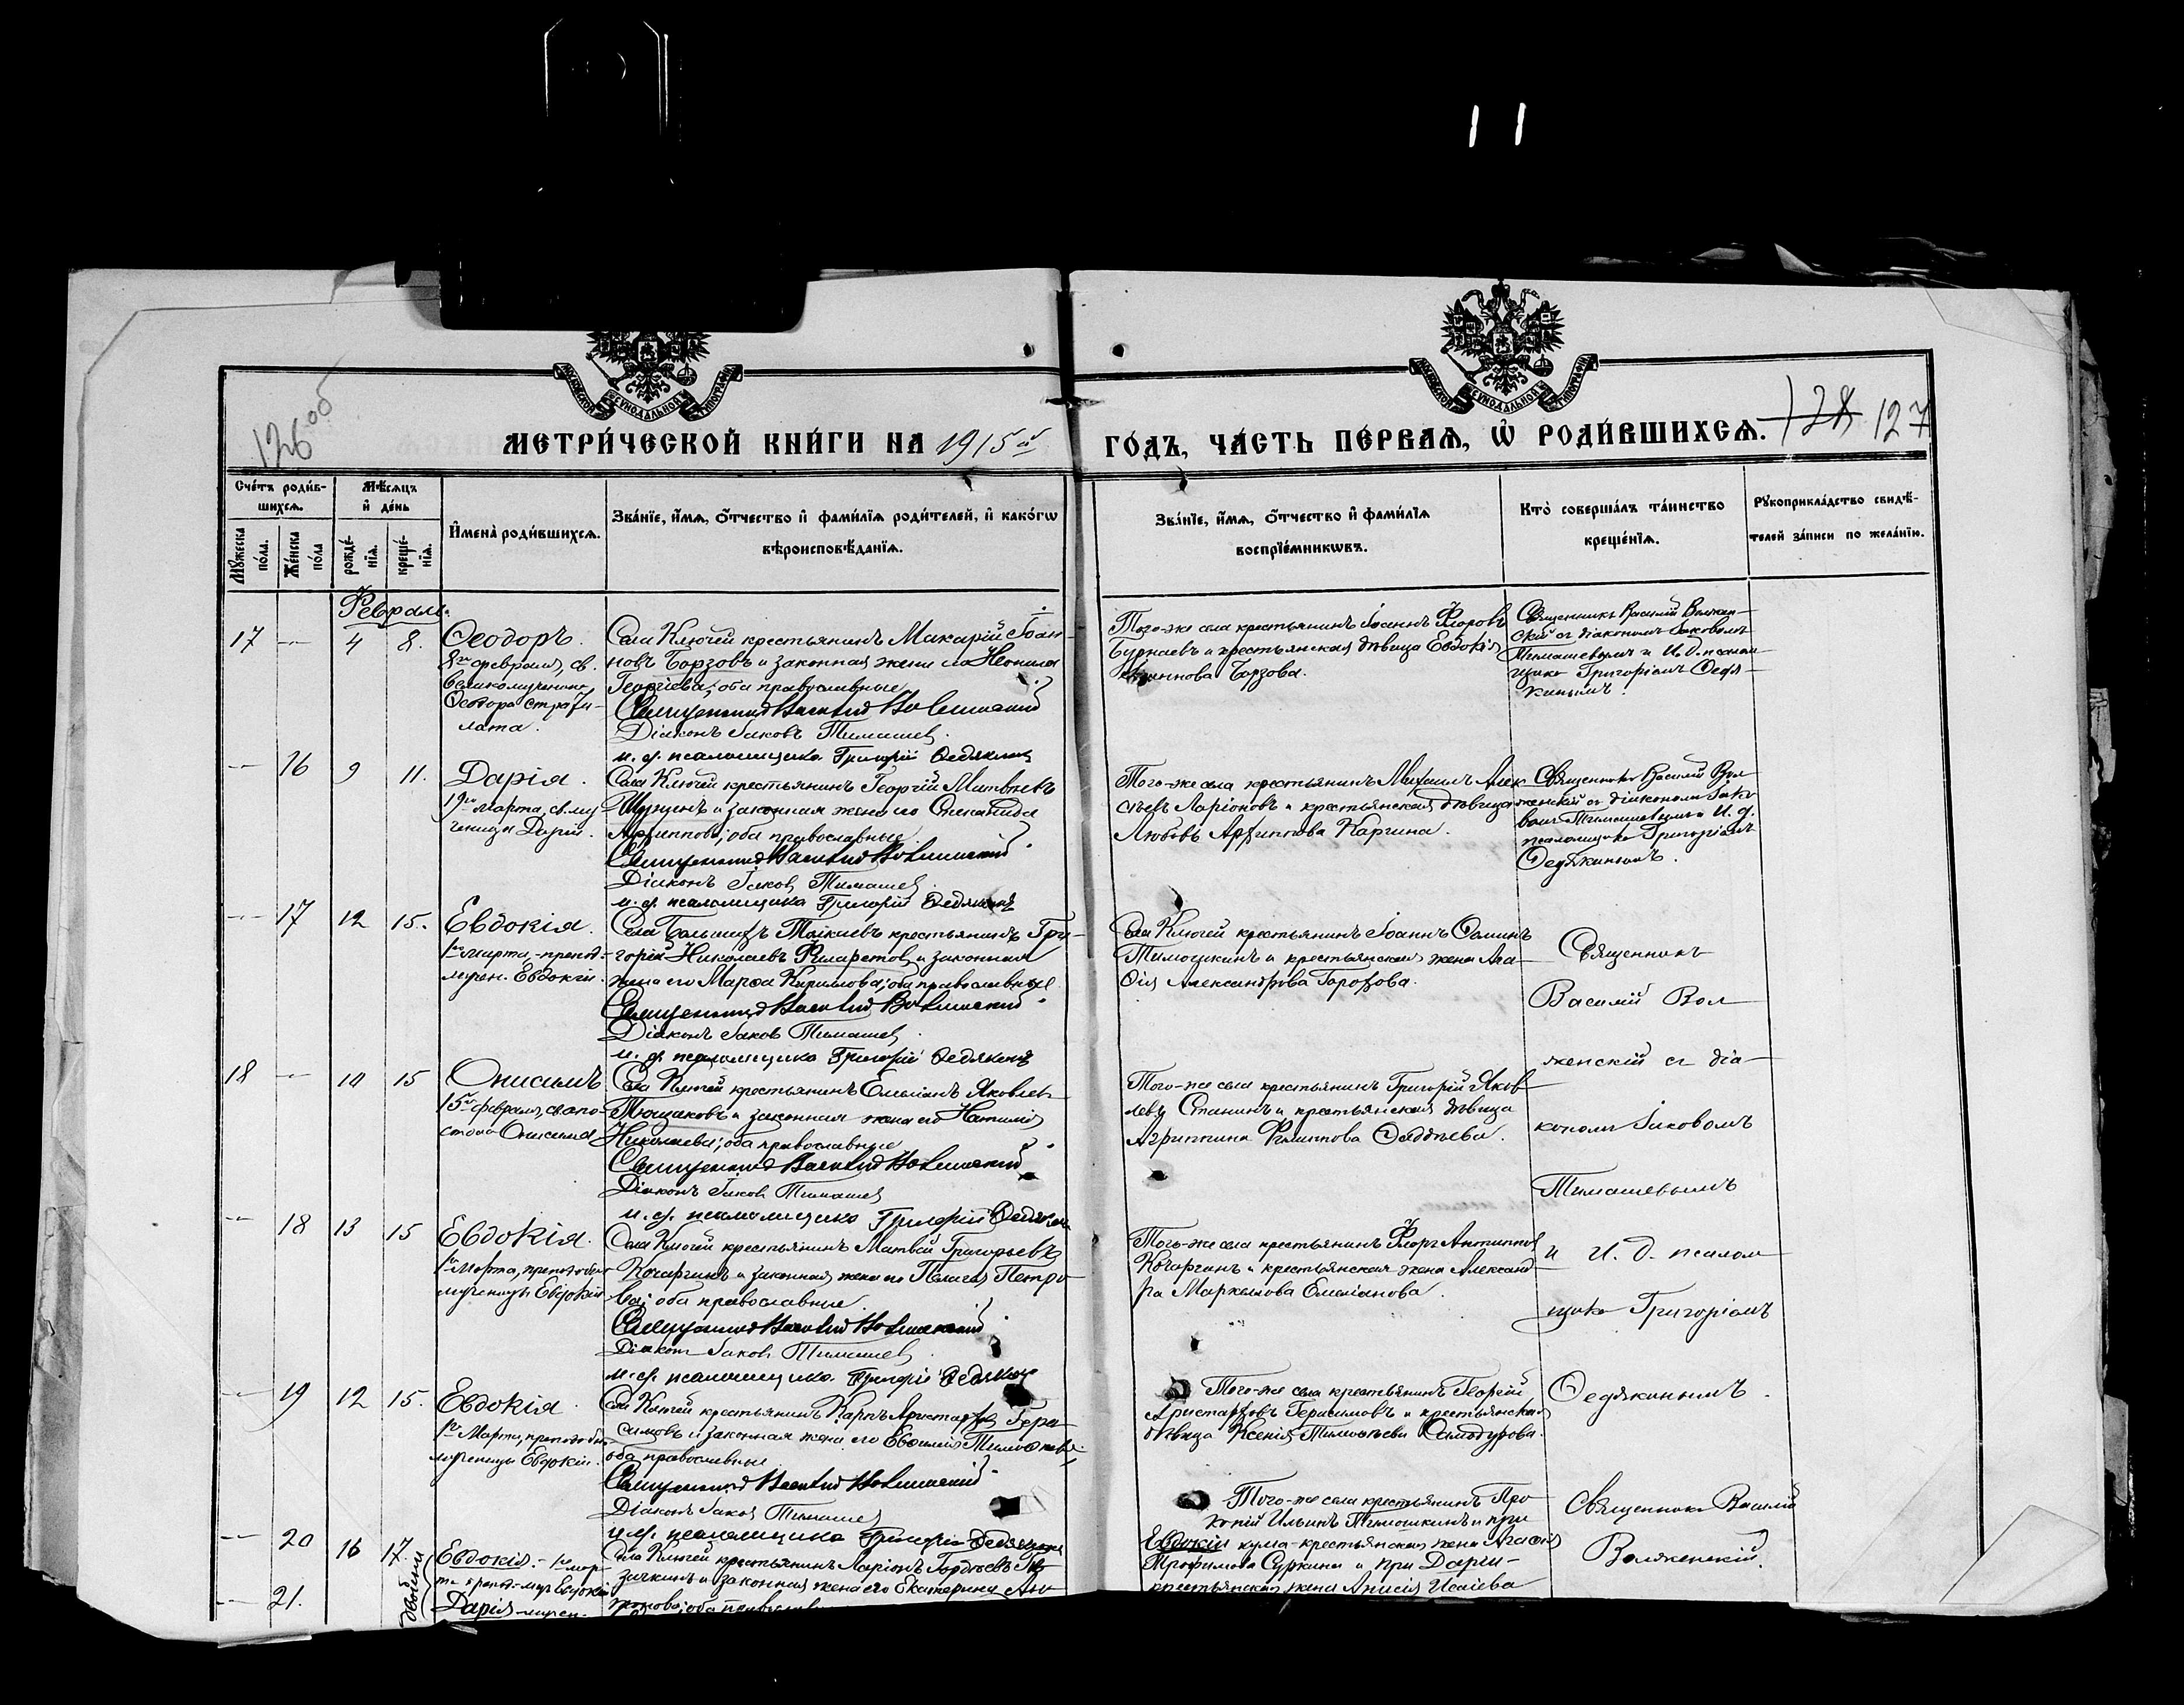 126 об
МЕТРИ́ЧЕСКОЙ КНИ́ГИ НА 1915 й
ГО́ДЪ, ЧА́СТЬ ПЕ́РВАѦ, Ѡ҆ РОДИ́ВШИХСѦ.
128 127
Сче́тъ роди́в-
шихсѧ.
Мꙋ́жеска
по́ла.
Же́нска
по́ла
Мѣ́сѧцъ
и҆ де́нь
рожде́-
нїѧ.
креще́-
нїѧ.
И҆мена̀ роди́вшихсѧ.
Зва́нїе, и҆́мѧ, ѻ҆́тчество и҆ фами́лїѧ роди́телей, и҆ како́гѡ
вѣроисповѣ́данїѧ.
Зва́нїе, и҆́мѧ, ѻ҆́тчество и҆ фами́лїѧ
воспрїе́мникѡвъ.
Кто̀ соверша́лъ та́инство
креще́нїѧ.
Рꙋкоприкла́дство свидѣ́-
телей за́писи по жела́нїю.
Февраль.
17 — 4 8.
Ѳеодоръ.
8го февраля, св.
великомученика
Ѳеодора Страти-
лата.
Села Ключей крестьянинъ Макарій Іоан-
новъ Борзовъ и законная жена его Неонила
Георгіева; оба православные
Священникъ Василій Волженскій
Діаконъ Іаковъ Тимашев
и. д. псаломщика Григорій Ѳедякинъ
Того-же села крестьянинъ Іоаннъ Флоровъ
Бурнаевъ и крестьянская дѣвица Евдокія
Іоаннова Борзова.
Священникъ Василій Волжен-
скій съ діакономъ Іаковомъ
Тимашевымъ и И. д. псалом-
щика Григоріемъ Ѳедя-
кинымъ.
— 16 9 11.
Дарія.
19го марта, св. му-
ченицы Даріи.
Села Ключей крестьянинъ Георгій Матвѣевъ
и законная жена его Степанида
Архиппова; оба православные
Священникъ Василій Волженскій
Діаконъ Іаков Тимашев
и. д. псаломщика Григорій Ѳедякинъ
Того-же села крестьянинъ Михаилъ Алек-
сѣевъ Ларіоновъ и крестьянская дѣвица
Любовь Архиппова Каргина.
Священникъ Василій Вол-
женскій съ діакономъ Іако-
вомъ Тимашевымъ и И. д.
псаломщика Григоріемъ
Ѳедякинымъ.
— 17 12 15.
Евдокія.
1го марта, препод-
мучен. Евдокіи.
Села крестьянинъ Гри-
горій Николаевъ Филаретов и законная
жена его Марѳа Кириллова; оба православные
Священникъ Василій Волженскій
Діаконъ Іаков Тимашев
и. д. псаломщика Григорій Ѳедякинъ
Села Ключей крестьянинъ Іоаннъ Ѳоминъ
Тимошкинъ и крестьянская жена Ага-
ѳія Александрова Горохова.
Священникъ
Василій Вол-
женскій съ діа-
кономъ Іаковомъ
Тимашевымъ
и И. д. псалом-
щика Григоріемъ
Ѳедякинымъ.
18 — 10 15
Онисимъ
15го февраля, св. апо-
стола Онисима
Села Ключей крестьянинъ Емеліанъ Яковлев
и законная жена его Наталія
Николаева; оба православные
Священникъ Василій Волженскій
Діаконъ Іаков Тимашев
и. д. псаломщика Григорій Ѳедякинъ
Того-же села крестьянинъ Григорій Яков-
левъ Станинъ и крестьянская дѣвица
Агриппина Филиппова Ѳаддѣева.
— 18 13 15
Евдокія.
1го Марта, преподобно-
мученицы Евдокіи
Села Ключей крестьянинъ Матвѣй Григорьевъ
Кочаргинъ и законная жена его Пелагія Петро-
ва; оба православные.
Священникъ Василій Волженскій
Діаконъ Іаков Тимашев
и. д. псаломщика Григорій Ѳедякинъ
Того-же села крестьянинъ Флоръ Антипповъ
Кочаргинъ и крестьянская жена Александ-
ра Маркеллова Емеліанова.
— 19 12 15.
Евдокія.
1го Марта, преподобно-
мученицы Евдокіи.
Села Ключей крестьянинъ Карпъ Аристархов Гера-
симовъ и законная жена его Евѳимія Тимоѳеева;
оба православные
Священникъ Василій Волженскій
Діаконъ Іаков Тимашев
и. д. псаломщика Григорій Ѳедякинъ
Того-же села крестьянинъ Георгій
Аристарховъ Герасимовъ и крестьянская
дѣвица Ксенія Тимоѳеева Самодурова.
— 20 16 17.
— 21.
двойни
Евдокія. - 1го мар-
та препод-муч Евдокіи
Дарія - мучен.
Села Ключей крестьянинъ Ларіонъ Гордѣевъ
и законная жена его Екатерина
оба православ
Того-же села крестьянинъ Про-
копій Ильинъ Тимошкинъ и при
Евдокіи кума-крестьянская жена Агаѳія
Трофимова Суркина и при Даріи-
крестьянская жена Анисія Исаіева
Священникъ Василій
Волженскій.